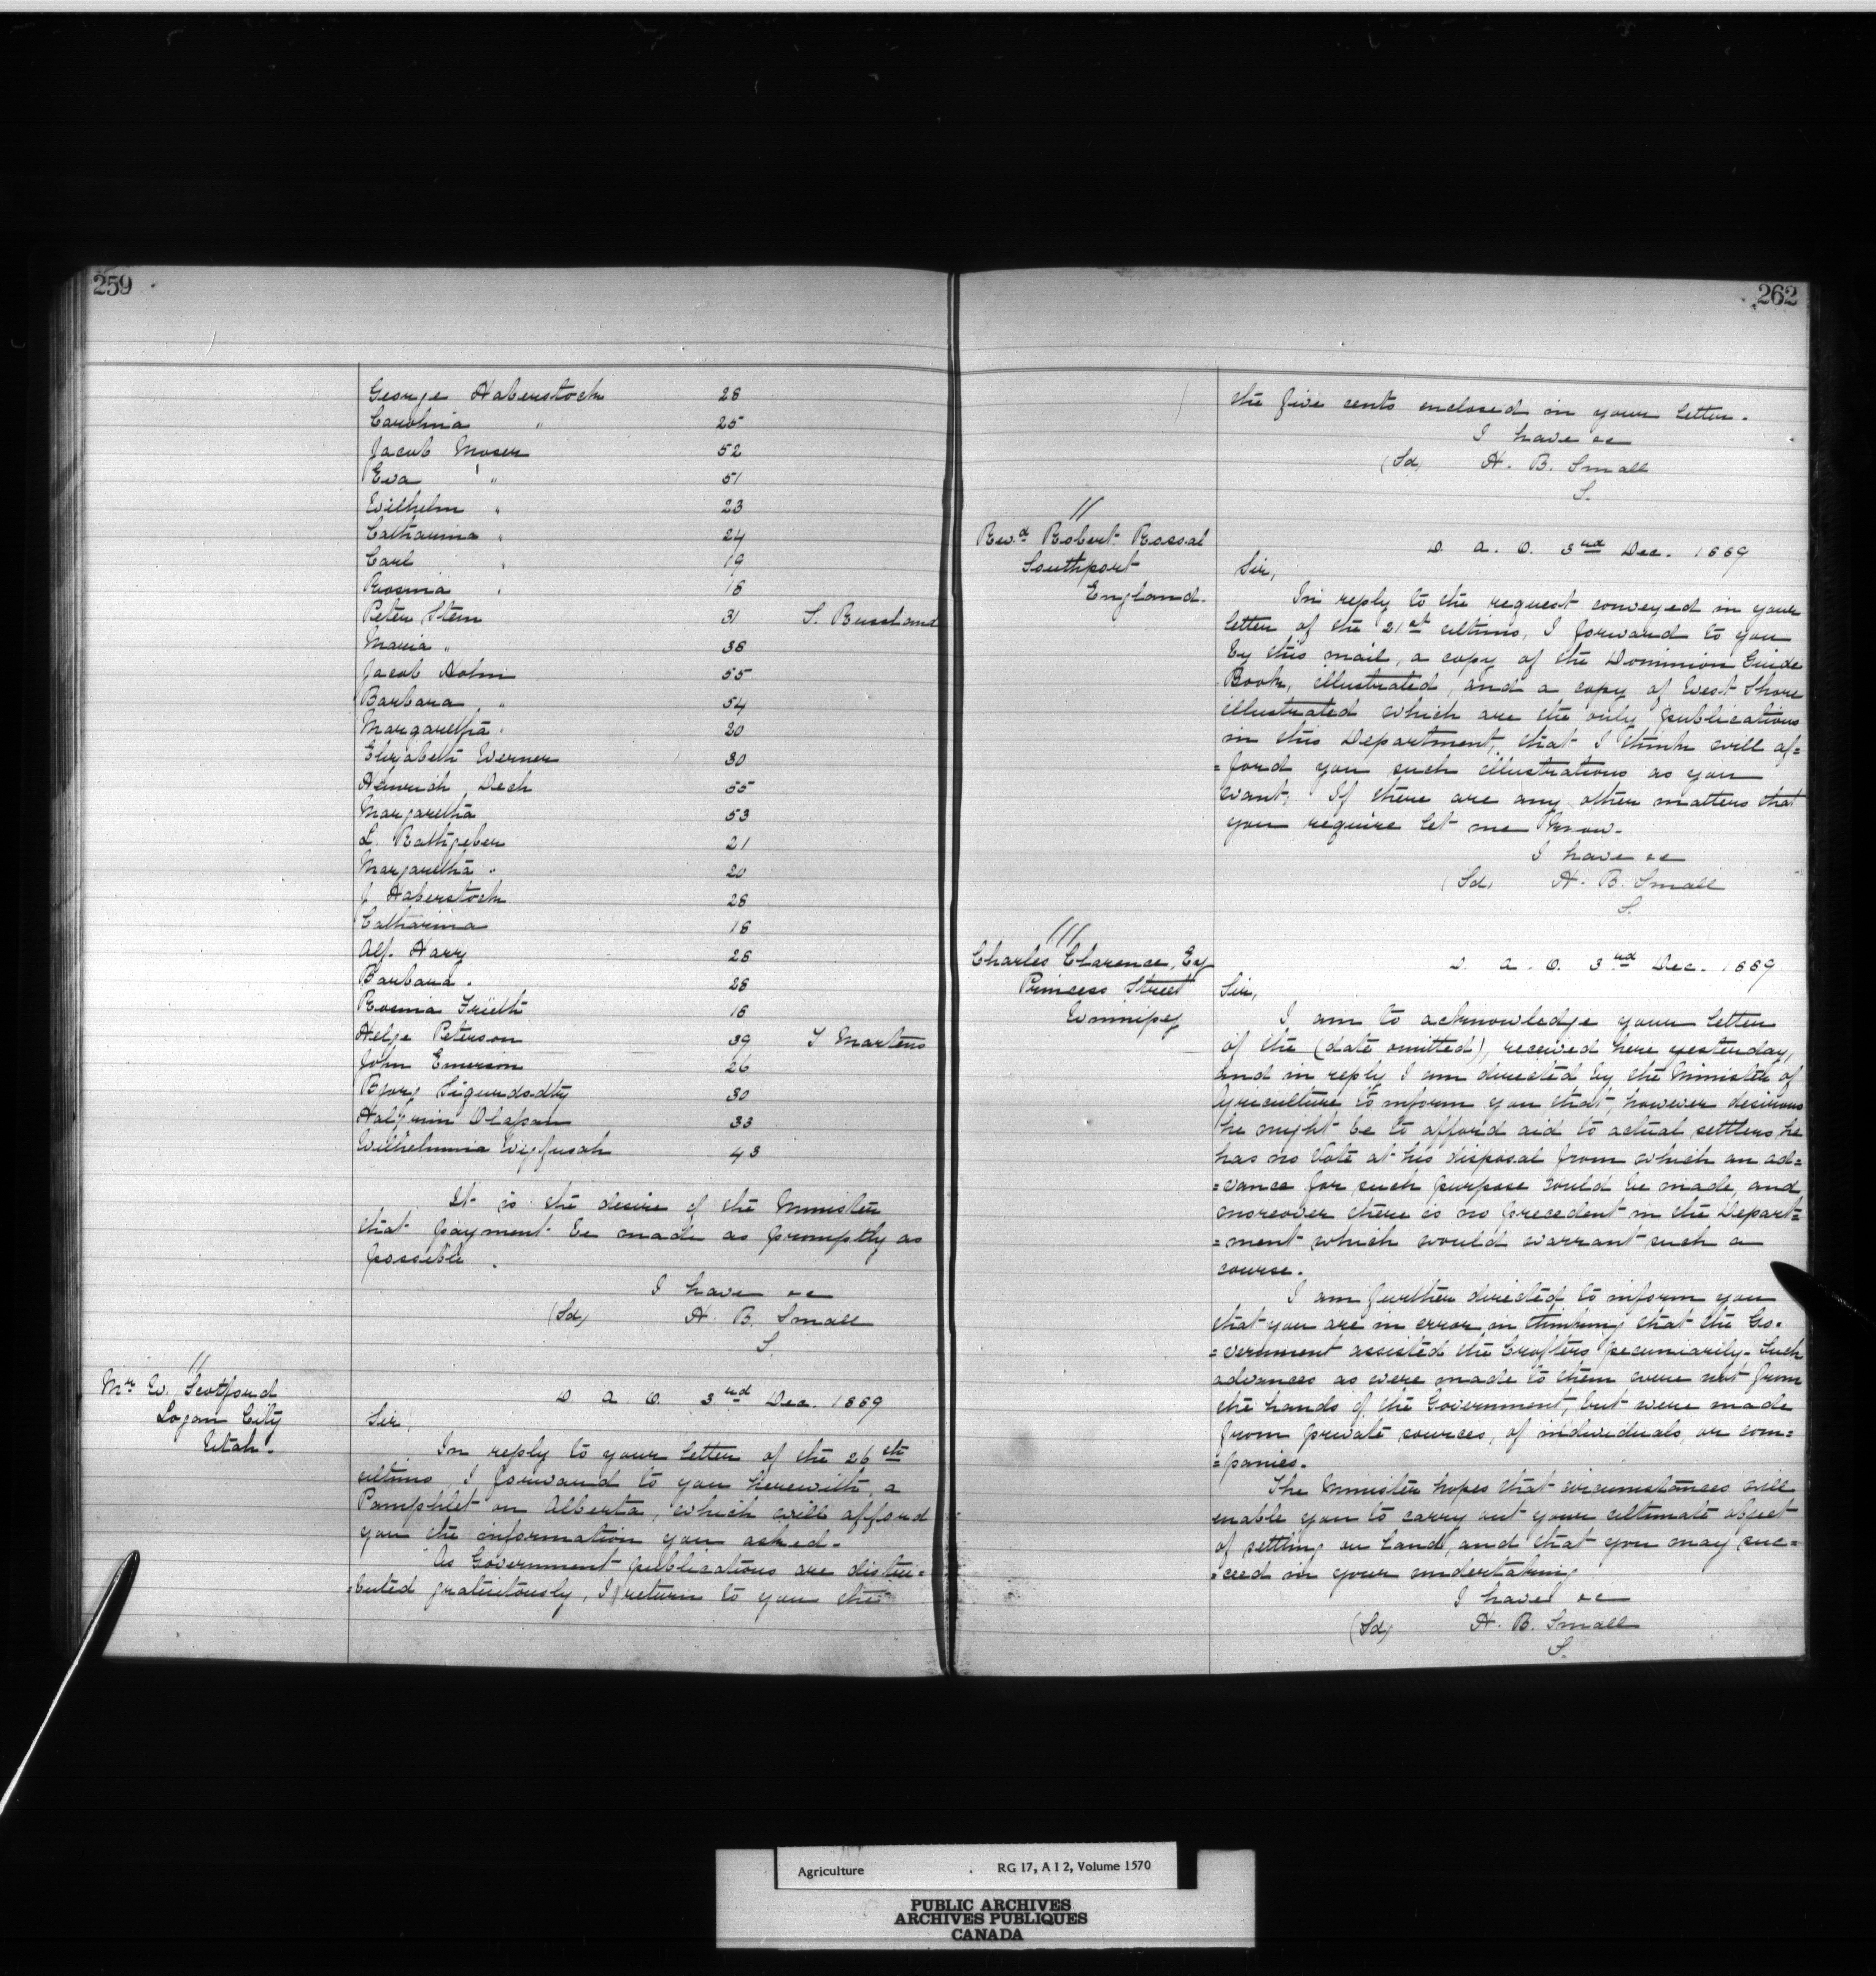 259
George Haberstock 28
Carolina " 25
Jacob Moser 52
Eva " 51
Wilhelm " 23
Catharina " 24
Carl " 19
Rosina " 18
Peter Stern 31 S. Russland
Maria " 36
Jacob Hohn 55
Barbara " 54
Margaretha " 20
Elizabeth Werner 30
Heinrich Dech 55
Margaretha 53
L. Rathgeber 21
Margaretha " 20
J Haberstock 28
Catharina 18
Alf. Harry 28
Barbara " 28
Rosina Frieth 18
Helge Peterson 39 T Martens
John Emerson 26
Bjorg Sigurdsdtty 30
Halgrim Olafson 33
Wilhelmina Vigfusah 43
It is the desire of the Minister
that payment be made as promptly as
possible.
I have &c
(Sd) H. B. Small
S.
//
Mr W. Scotford
Logan City
Utah.
D. A. O. 3rd Dec. 1889
Sir,
In reply to your letter of the 26th
ultimo, I forward to you herewith, a
Pamphlet on Alberta, which will afford
you the information you asked.
As Government publications are distri=
=buted gratuitously, I return to you the
262
the five cents enclosed in your letter.
I have &c
(Sd) H. B. Small
S.
//
Revd Robert Rossal
Southport
England.
D. A. O. 3rd Dec. 1889
Sir,
In reply to the request conveyed in your
letter of the 21st ultimo, I forward to you
by this mail, a copy of the Dominion Guide
Book, illustrated, and a copy of West Shore
illustrated which are the only publications
in this Department, that I think will af=
=ford you such illustrations as you
want. If there are any other matters that
you require let me know.
I have &c
(Sd) H. B. Small
S.
///
Charles Clarence, Esq
Princess Street
Winnipeg
D. A. O. 3rd Dec. 1889
Sir,
I am to acknowledge your letter
of the (date omitted), received here yesterday,
and in reply I am directed by the Minister of
Agriculture to inform you that, however desirous
he might be to afford aid to actual settlers, he
has no Vote at his disposal from which an ad=
=vance for such purpose could be made, and
moreover there is no precedent in the Depart=
=ment which would warrant such a
course.
I am further directed to inform you
that you are in error in thinking that the Go=
=vernment assisted the Crofters pecuniarily. Such
advances as were made to them were not from
the hands of the Government, but were made
from private sources, of individuals, or com=
=panies.
The Minister hopes that circumstances will
enable you to carry out your ultimate object
of settling on land, and that you may suc=
=ceed in your undertaking.
I have &c
(Sd) H. B. Small
S.
Agriculture RG 17, A I 2, Volume 1570
PUBLIC ARCHIVES
ARCHIVES PUBLIQUES
CANADA